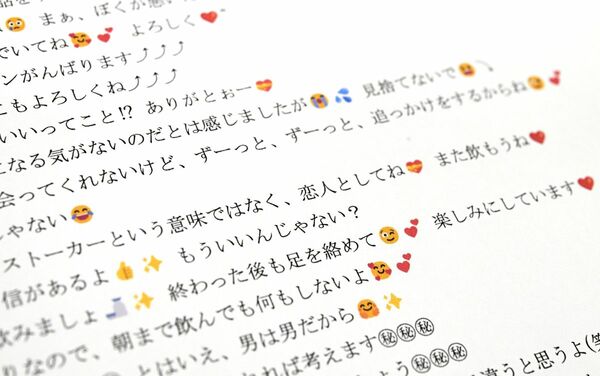 まぁ、ぼくが悪い
でいてね🥰💕 よろしく❤️
ンがんばります⤴⤴
こもよろしくね⤴⤴⤴
いいってこと⁉ ありがとぉー💝
になる気がないのだとは感じましたが😭💦 見捨てないで😫
会ってくれないけど、ずーっと、ずーっと、追っかけをするからね😉💕
じゃない😂
ストーカーという意味ではなく、恋人としてね💝 また飲もうね❤️
信があるよ👍✨ もういいんじゃない？
飲みましょ🍶✨ 終わった後も足を絡めて😉💕 楽しみにしています❤️
りなので、朝まで飲んでも何もしないよ🥰💕
とはいえ、男は男だから🤗✨
れば考えます㊙㊙㊙
よう㊙㊙㊙
違うと思うよ(笑